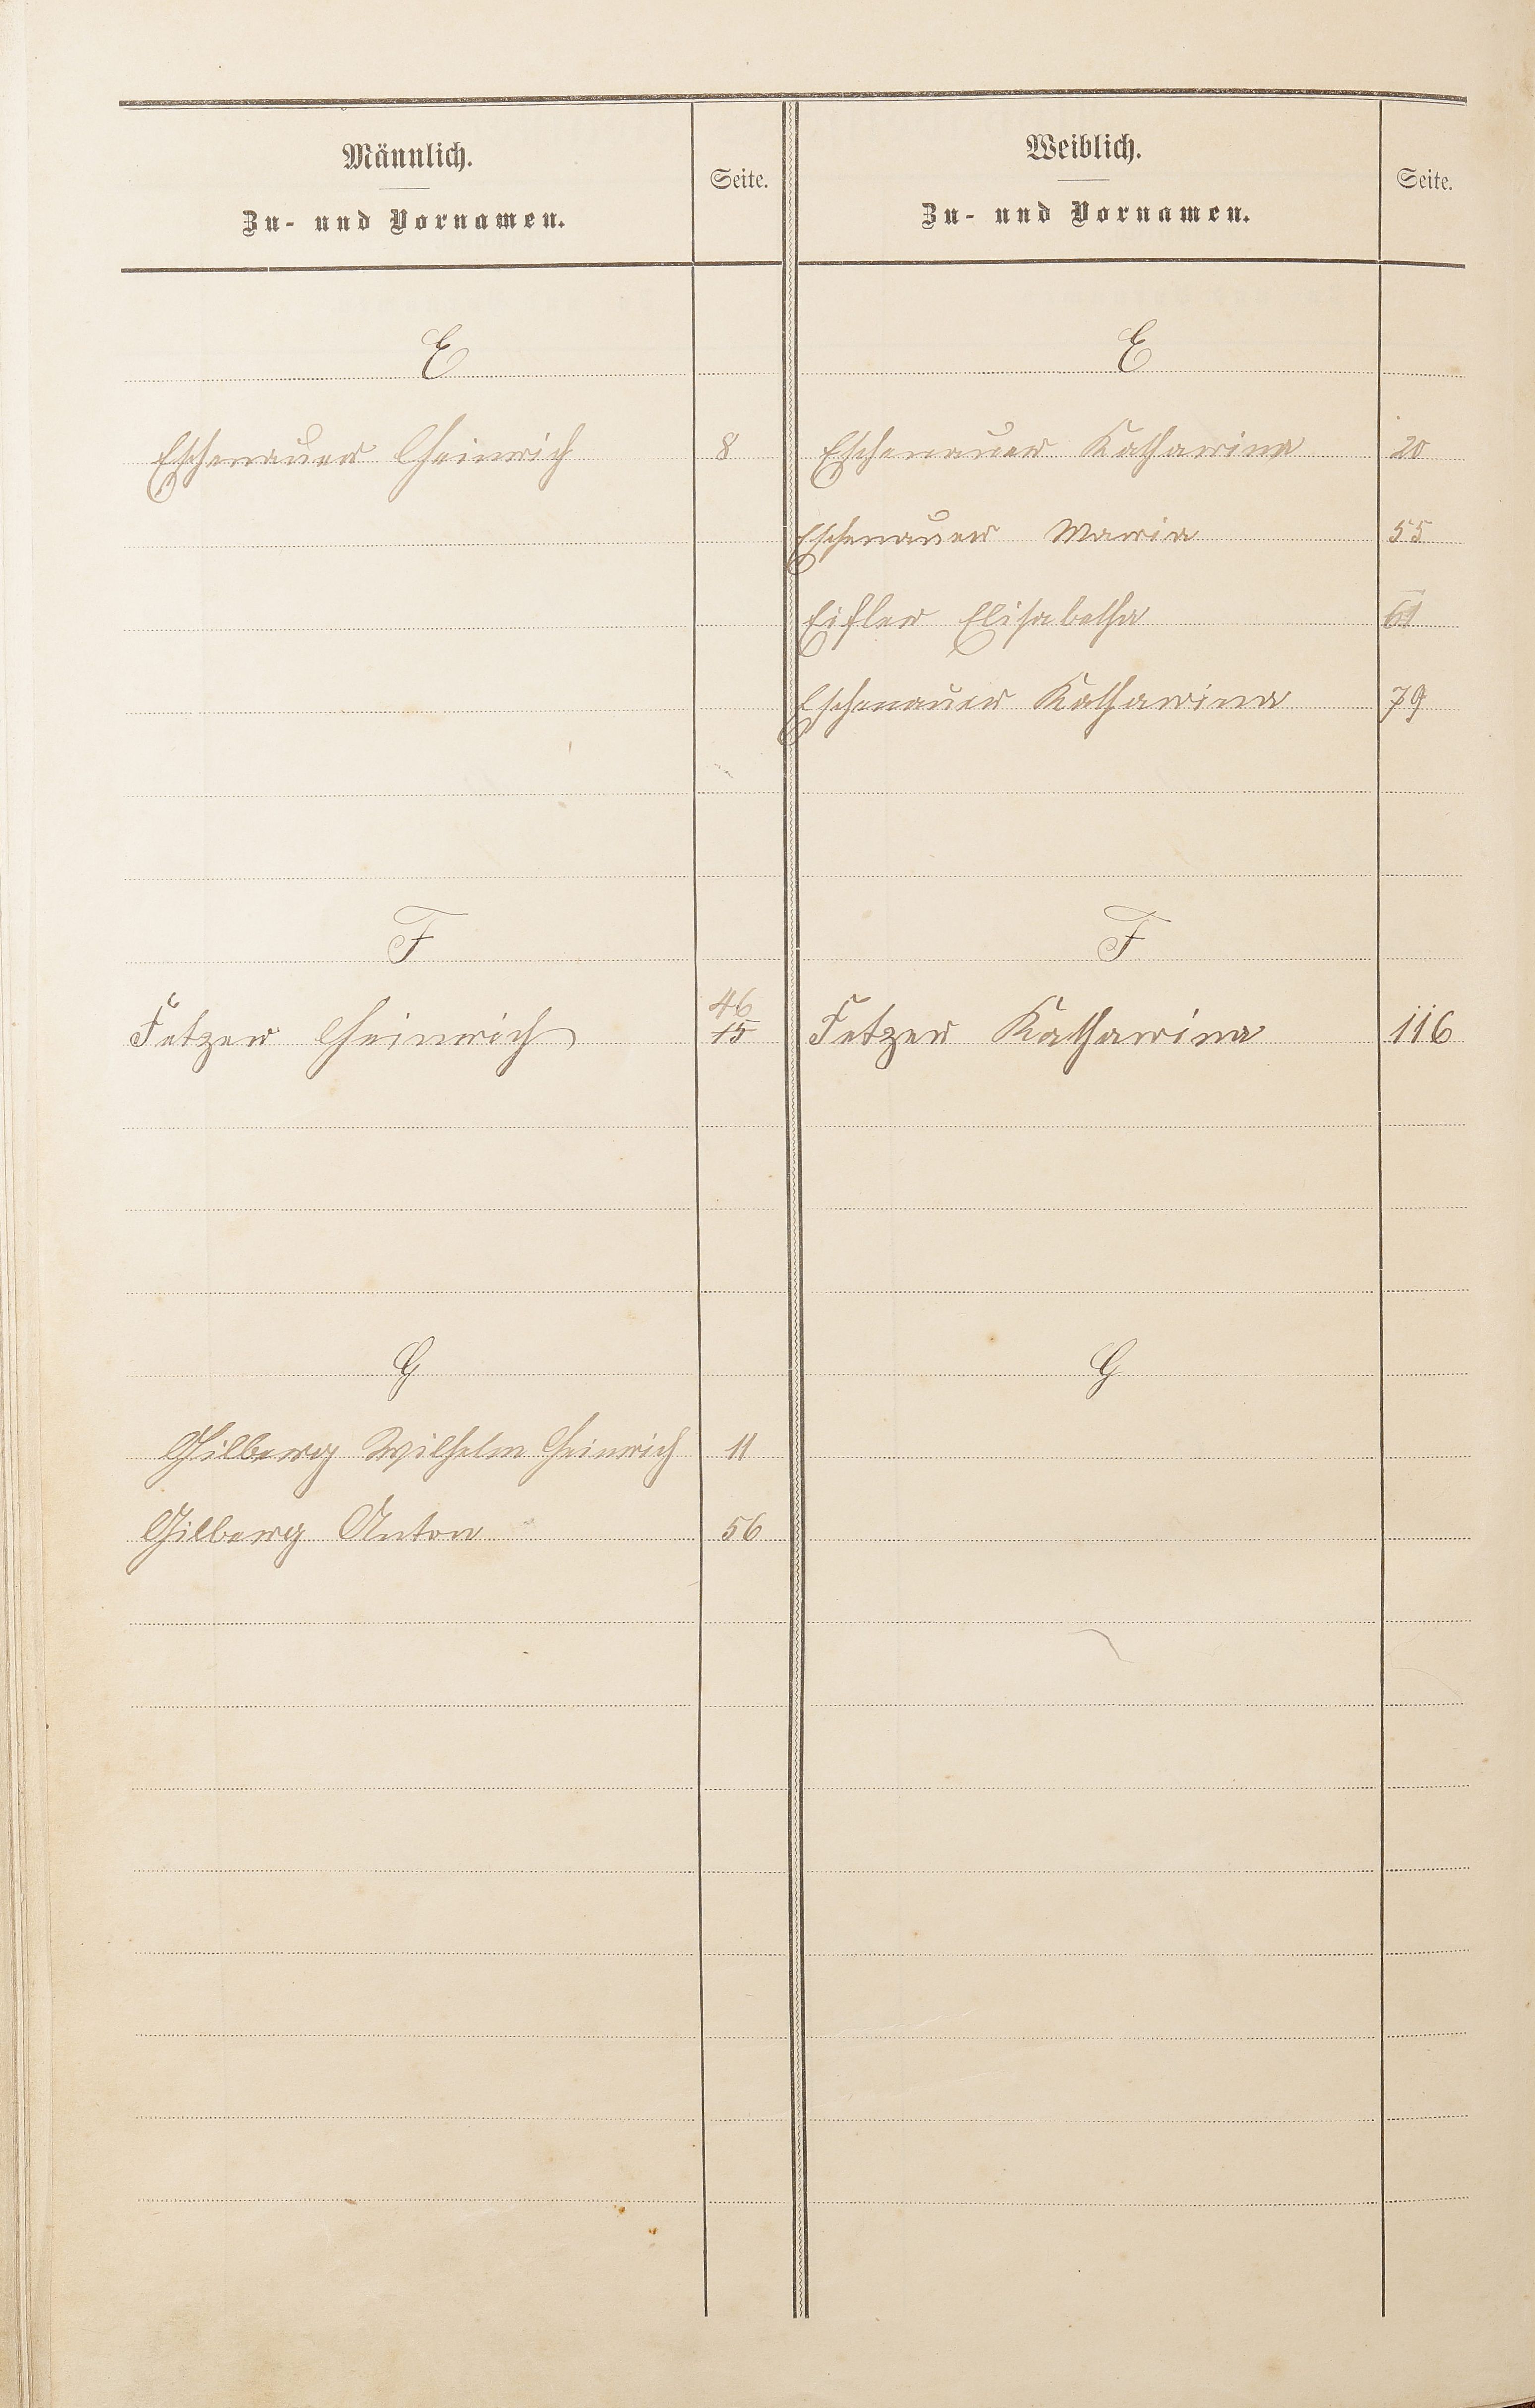 Männlich.
Zu- und Vornamen.
Seite.
Weiblich.
Zu- und Vornamen.
Seite.
E
E
Eschenauer Heinrich 8 Eschenauer Katharina 20
Eschenauer Maria 55
Eifler Elisabetha 61
Eschenauer Katharina 79
F
F
46
Fetzer Heinrich 15 Fetzer Katharina 116
G
G
Gilberg Wilhelm Heinrich 11
Gilberg Anton 56